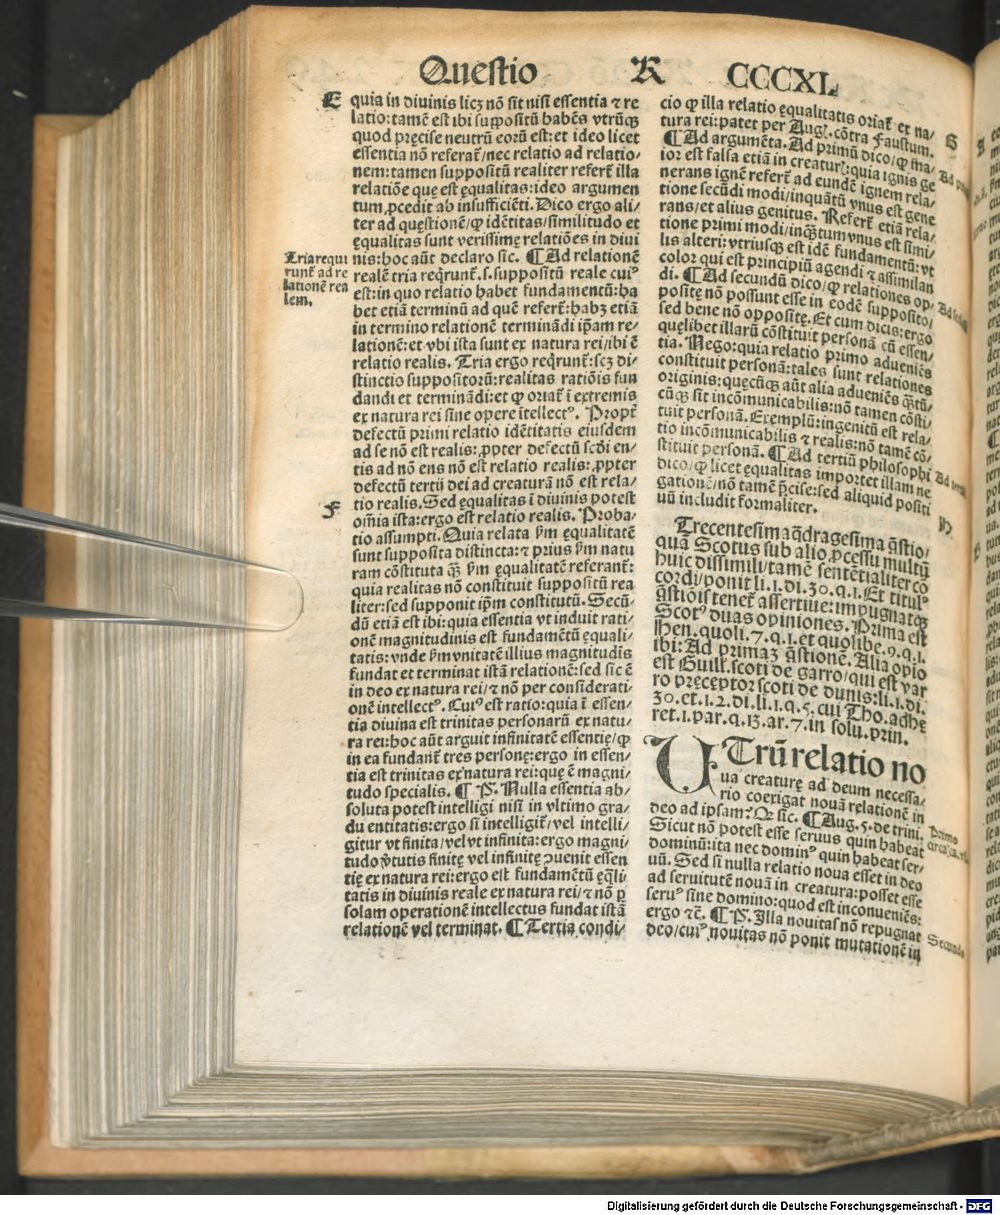 Questio K CCCXL
E quia in diuinis licꝫ nõ sit nisi essentia ⁊ re
latio: tamẽ est ibi suppositũ habẽs vtrũqꝫ
quod pręcise neutrũ eorũ est: et ideo licet
essentia nõ referat̃/nec relatio ad relatio⸗
nem: tamen suppositũ realiter refert̃ illa
relatiõe que est ęqualitas: ideo argumen
tum ꝓcedit ab insufficiẽti. Dico ergo ali/
ter ad quęstionẽ/ꝙ idẽtitas/similitudo et
ęqualitas sunt verissimę relatiões in diui
nis: hoc aũt declaro sic. ¶Ad relationẽ
realẽ tria reqrunt̃. s. suppositũ reale cuiꝰ
est: in quo relatio habet fundamentũ: ha
bet etiã terminũ ad quẽ refert̃: habꝫ etiã
in termino relationẽ terminãdi ip̃am re/
lationẽ: et vbi ista sunt ex natura rei/ibi ẽ
relatio realis. Tria ergo reqrunt̃: scꝫ di/
stinctio suppositorũ: realitas ratiõis fun
dandi et terminãdi: et ꝙ oriat̃ ĩ extremis
ex natura rei sine opere ĩtellectꝰ. Propt̃
defectũ primi relatio idẽtitatis eiusdem
ad se nõ est realis: ꝓpter defectũ scd̃i en/
tis ad nõ ens nõ est relatio realis: ꝓpter
defectũ tertij dei ad creaturã nõ est rela/
tio realis. Sed ęqualitas ĩ diuinis potest
F om̃ia ista: ergo est relatio realis. Proba/
tio assumpti. Quia relata ẜm ęqualitatẽ
sunt supposita distincta: ⁊ prius ẜm natu
ram cõstituta q̃ꝫ ẜm ęqualitatẽ referant̃:
quia realitas nõ constituit suppositũ rea
liter: sed supponit ip̃m constitutũ. Secũ/
dũ etiã est ibi: quia essentia vt induit rati/
onẽ magnitudinis est fundamẽtũ ęquali/
tatis: vnde ẜm vnitatẽ illius magnitudĩs
fundat et terminat istã relationẽ: sed sic ẽ
in deo ex natura rei/⁊ nõ per considerati/
onẽ intellectꝰ. Cuiꝰ est ratio: quia ĩ essen/
tia diuina est trinitas personarũ ex natu/
ra rei: hoc aũt arguit infinitatẽ essentię/ꝙ
in ea fundant̃ tres personę: ergo in essen/
tia est trinitas ex natura rei: quę ẽ magni/
tudo specialis. ¶ P. Nulla essentia ab/
soluta potest intelligi nisi in vltimo gra/
du entitatis: ergo si intelligit̃/vel intelli/
gitur vt finita/vel vt infinita: ergo magni/
tudo ṽtutis finitę vel infinitę ↄuenit essen
tię ex natura rei: ergo est fundamẽtũ ęq̃li
tatis in diuinis reale ex natura rei/⁊ nõ ꝑ
solam operationẽ intellectus fundat istã
relationẽ vel terminat. ¶Tertia condi/
Tria requi
runt̃ ad re
lationẽ rea
lem.
cio ꝙ illa relatio ęqualitatis oriat̃ ex na/
tura rei: patet per Augꝰ. cõtra Faustum. G
¶Ad argumẽta. Ad primũ dico/ꝙ ma/
ior est falsa etiã in creaturꝭ: quia ignis ge
nerans ignẽ refert̃ ad eundẽ ignem rela/
tione secũdi modi/inquãtũ vnus est gene
rans/et alius genitus. Refert̃ etiã rela/
tione primi modi/inq̃tum vnus est simi/
lis alteri: vtriusqꝫ est idẽ fundamentũ: vt
color qui est principiũ agendi ⁊ assimilan
di. ¶Ad secundũ dico/ꝙ relationes op/
positę nõ possunt esse in eodẽ supposito/
sed bene nõ oppositę. Et cum dicis: ergo
quęlibet illarũ cõstituit personã cũ essen/
tia. Nego: quia relatio primo adueniẽs
constituit personã: tales sunt relationes
originis: quęcũqꝫ aũt alia adueniẽs q̃tũ/
cũqꝫ sit incõmunicabilis: nõ tamen cõsti/
tuit personã. Exemplũ: ingenitũ est rela/
tio incõmunicabilis ⁊ realis: nõ tamẽ cõ/
stituit personã. ¶Ad tertiũ philosophi
dico/ꝙ licet ęqualitas importet illam ne
gationẽ/nõ tamẽ p̃cise: sed aliquid positi
uũ includit formaliter. H
Trecentesima q̃dragesima q̃stio/
quã Scotus sub alio ꝓcessu multũ
huic dissimili/tamẽ sentẽtialiter cõ
cordi/ponit li. 1. di. 30. q. 1. Et titulꝰ
q̃stiõis tenet̃ assertiue: impugnatqꝫ
Scotꝰ duas opiniones. Prima est
Hen. quoli. 7. q. 1. et quolibe. 9. q. 1.
ibi: Ad primaꝫ q̃stionẽ. Alia opio
est Guill. scoti de garro/qui est var
ro pręceptor scoti de dunis: li. 1. di.
30. et. 1. 2. di. li. 1. q. 5. cui Tho. adhę
ret. 1. par. q. 13. ar. 7. in solu. prin.
UTrũ relatio no
ua creaturę ad deum necessa/
rio coexigat nouã relationẽ in
deo ad ipsam? Qꝛ sic. ¶Aug. 5. de trini.
Sicut nõ potest esse seruus quin habeat
dominũ: ita nec dominꝰ quin habeat ser/
uũ. Sed si nulla relatio noua esset in deo
ad seruitutẽ nouã in creatura: posset esse
seruꝰ sine domino: quod est inconueniẽs:
ergo ⁊c̃. ¶ P. Illa nouitas nõ repugnat
deo/cuiꝰ nouitas nõ ponit mutationẽ in
Primo
Secundo
Digitalisierung gefördert durch die Deutsche Forschungsgemeinschaft - DFG